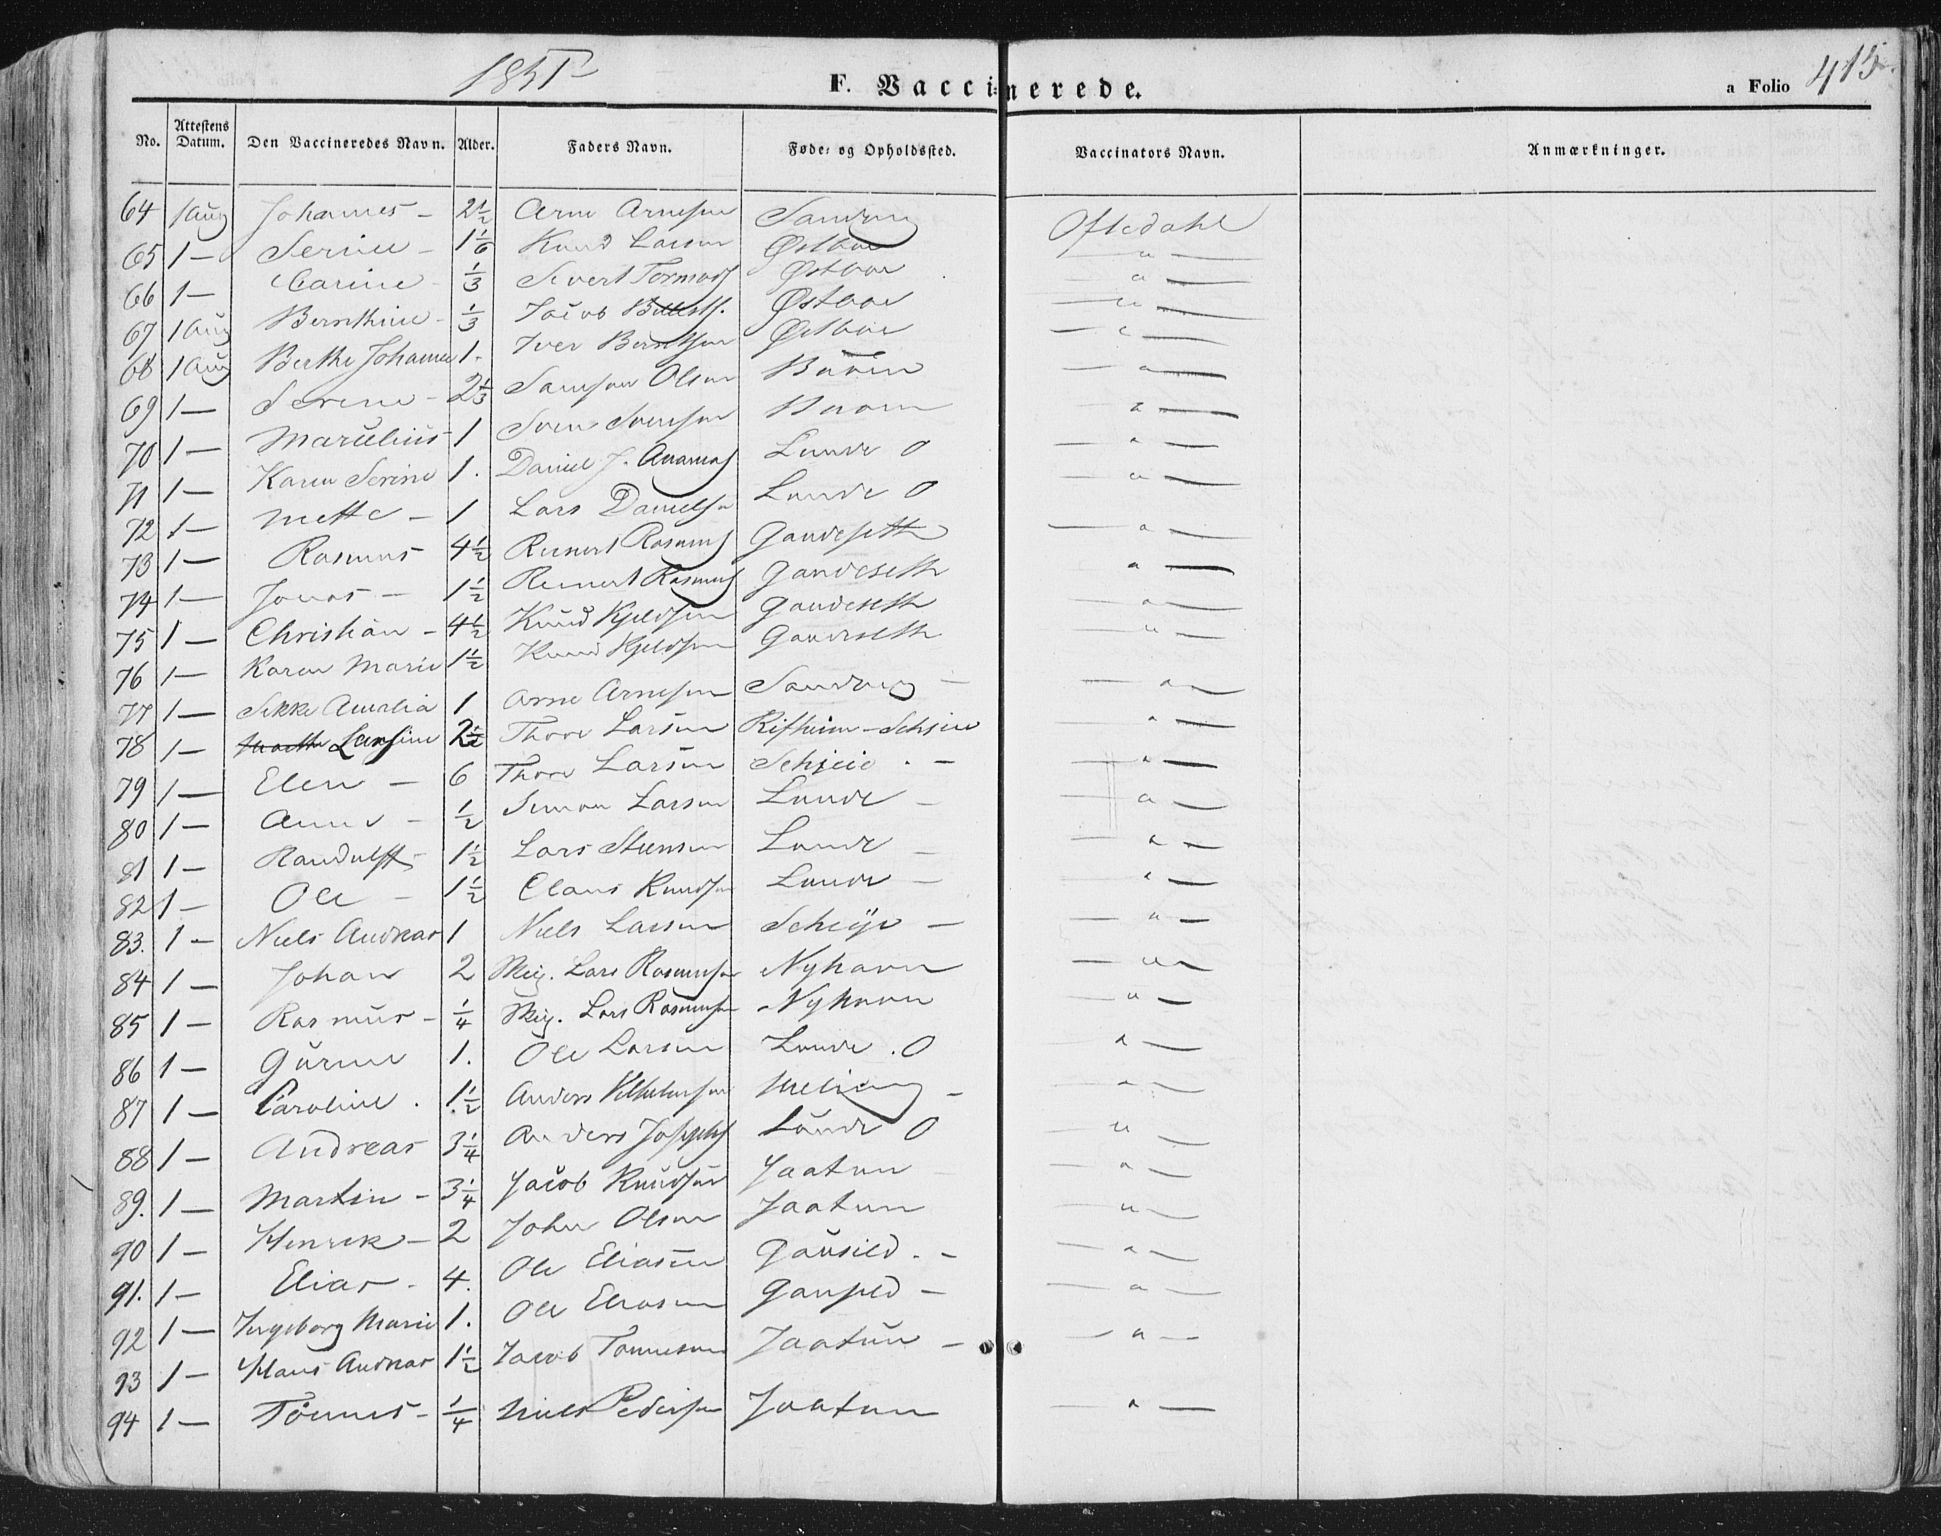 1851
F. Vaccinerede.
a Folio 415.
No. Attestens Datum. Den Vaccineredes Navn. Alder. Faders Navn. Føde- og Opholdssted. Vaccinators Navn. Anmærkninger.
64 1 Aug Johannes – 2½ Arne Arnesen Sandvig Oftedahl
65 1 – Serine – 1 1/6 Knud Larsen Østboe – " –
66 1 – Carine – 1/3 Sivert Tormods Østboe – " –
67 1 Aug Bernthine – 1/3 Jacob Østboe – " –
68 1 Aug Berthe Johanne 1. Iver Berntsen Østboe – " –
69 1 – Serine – 2 1/3 Samson Olsen – " –
70 1 – Marselius 1 Sven Svensen – " –
71 1 – Karen Serine 1. Daniel J. Lunde O – " –
72 1 – Mette – 1 Lars Danielsen Lunde O – " –
73 1 – Rasmus 4½ Reinert Rasmus Gandeseth – " –
74 1 – Jonas – 1½ Reinert Rasmus Gandeseth – " –
75 1 – Christian – 4½ Knud Kjeldsen Gandeseth – " –
76 1 – Karen Marie 1½ Knud Kjeldsen Gandeseth – " –
77 1 – Sikke Amalia 1 Arne Arnesen Sandvig – – " –
78 1 – 2½ Thore Larsen – " –
79 1 – Elen – 6 Thore Larsen . – – " –
80 1 – Anne – ½ Simon Larsen Lunde – – " –
81 1 – Randulff 1½ Lars Stensen Lunde – – " –
82 1 – Ole – 1½ Claus Knudsen Lunde – – " –
83. 1 – Niels Andreas 1 Niels Larsen – – " –
84 1 – Johan 2 Lars Rasmussen Nyhavn – " –
85 1 – Rasmus – ¼ Lars Rasmussen Nyhavn – " –
86 1 – Gurine 1. Ole Larsen Lunde . O " –
87 1 – Caroline . 1½ Anders Meling – – " –
88 1 – Andreas 3¼ Anders Josephs Lunde O – " –
89. 1 – Martin – 3¼ Jacob Knudsen Jaatun – " –
90 1 – Henrik – 2 John Olsen Jaatun – " –
91. 1 – Elias – 4. Ole Eliasen Gausild . – – " –
92 1 – Ingeborg Marie 1. Ole Eliasen Gausild – – " –
93 1 – Hans Andreas 1½ Jacob Tønnesen Jaatun – – " –
94 1 – Tönnes – ¼ Niels Pedersen Jaatun – " –